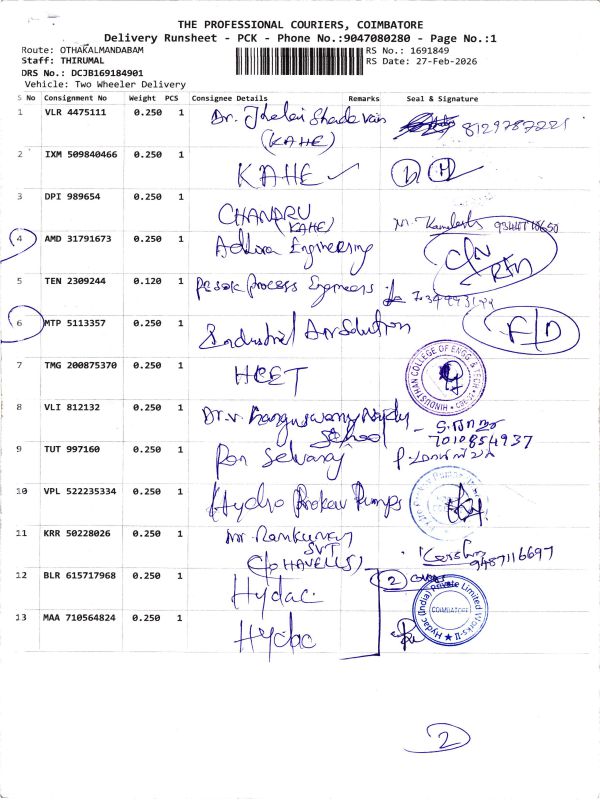 THE PROFESSIONAL COURIERS, COIMBATORE
Delivery Runsheet - PCK - Phone No.:9047080280 - Page No.:1
Route: OTHAKALMANDABAM RS No.: 1691849
Staff: THIRUMAL RS Date: 27-Feb-2026
DRS No.: DCJB169184901
Vehicle: Two Wheeler Delivery
S No Consignment No Weight PCS Consignee Details Remarks Seal & Signature
1 VLR 4475111 0.250 1 Dr. 8129787221
(KAHE)
2 IXM 509840466 0.250 1 KAHE
3 DPI 989654 0.250 1 CHANDRU
(KAHE)
4 AMD 31791673 0.250 1 Adhora Engineering C/N
5 TEN 2309244 0.120 1 Process Engineers
6 MTP 5113357 0.250 1 Industrial Air Solution F/D
7 TMG 200875370 0.250 1 HCET HINDUSTHAN COLLEGE OF ENGG & TECH
8 VLI 812132 0.250 1 Dr. V. Ranguswamy Naydu
School 7010854937
9 TUT 997160 0.250 1 Pon Selvaraj
10 VPL 522235334 0.250 1 Hydro Prokav Pumps
11 KRR 50228026 0.250 1 Mr. Ramkumar
SVT
C/o HAVELLS) 9487116697
12 BLR 615717968 0.250 1 Hydac 2 Hydac (India) Private Limited Works-II COIMBATORE
13 MAA 710564824 0.250 1 Hydac
2